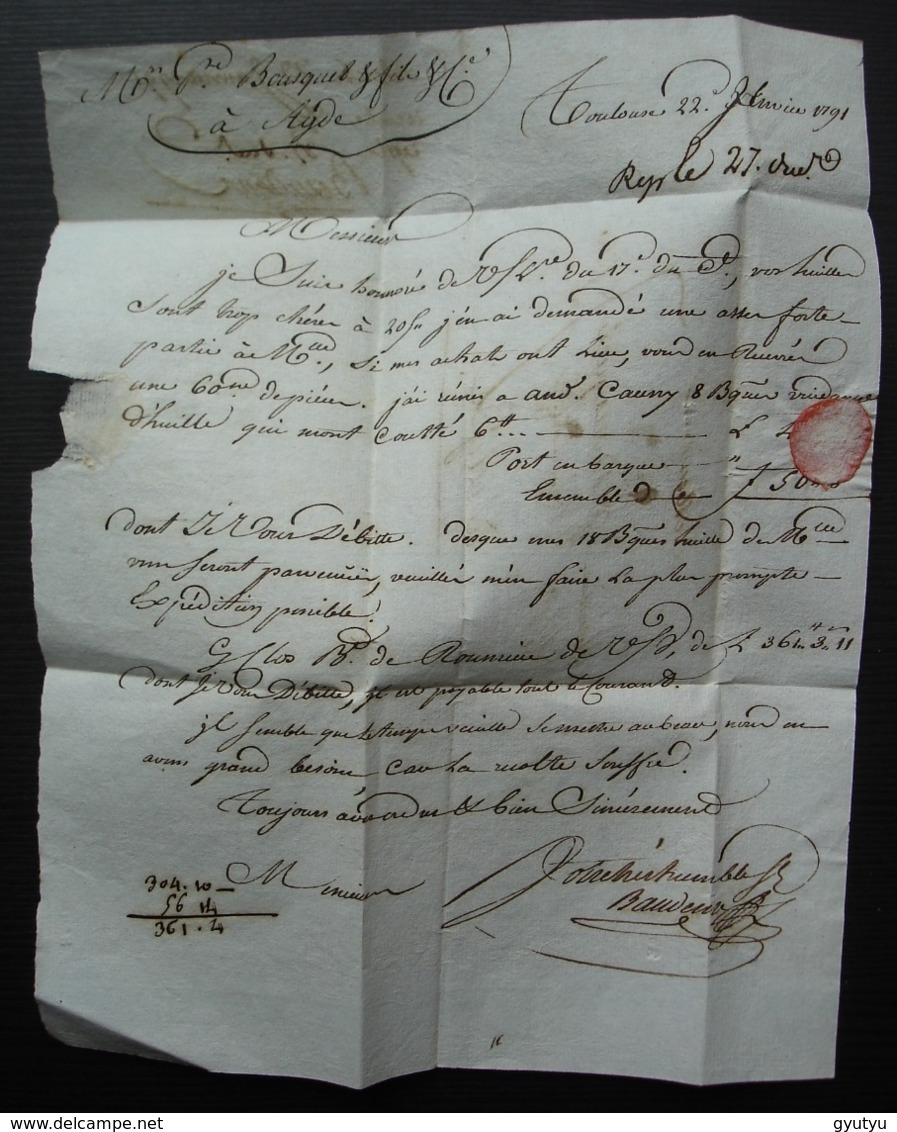 Mrs Pre Bousquet & fils & Ce
à Agde
Toulouse 22e Janvier 1791
Repse le 27. dud.
Messieurs
je Suis honnoré de v/ Lre du 17e du Ct, vos huilles
sont trop chéres à 20s j'en ai demandé une assés forte
partie à Mlle, si mes achats ont Lieu, vous en Recevrés
une 60ne de piéces. j'ai remis a andé Cauny 8 Bques vuidange
d'huille qui mont coutté 6tt L 4
Port en barque "
Ensemble L 50
dont Je Vous Débitte. desque mes 18 Bques huille de Mlle
vous seront parvenües, veuillés m'en faire La plus prompte
Expédition possible.
Cy Clos de Roumieu de L 361 3 11
dont Je vous Débitte, il est payable tout le Courant.
jl semble que le temps veuille se mettre au beau, nous en
avons grand besoin Car La recolte souffre.
Toujours a vos ordres & bien Sincérement
Messieurs
304.10
56 14
361.4
Votre trés humble Sr
Baudens
gyutyu